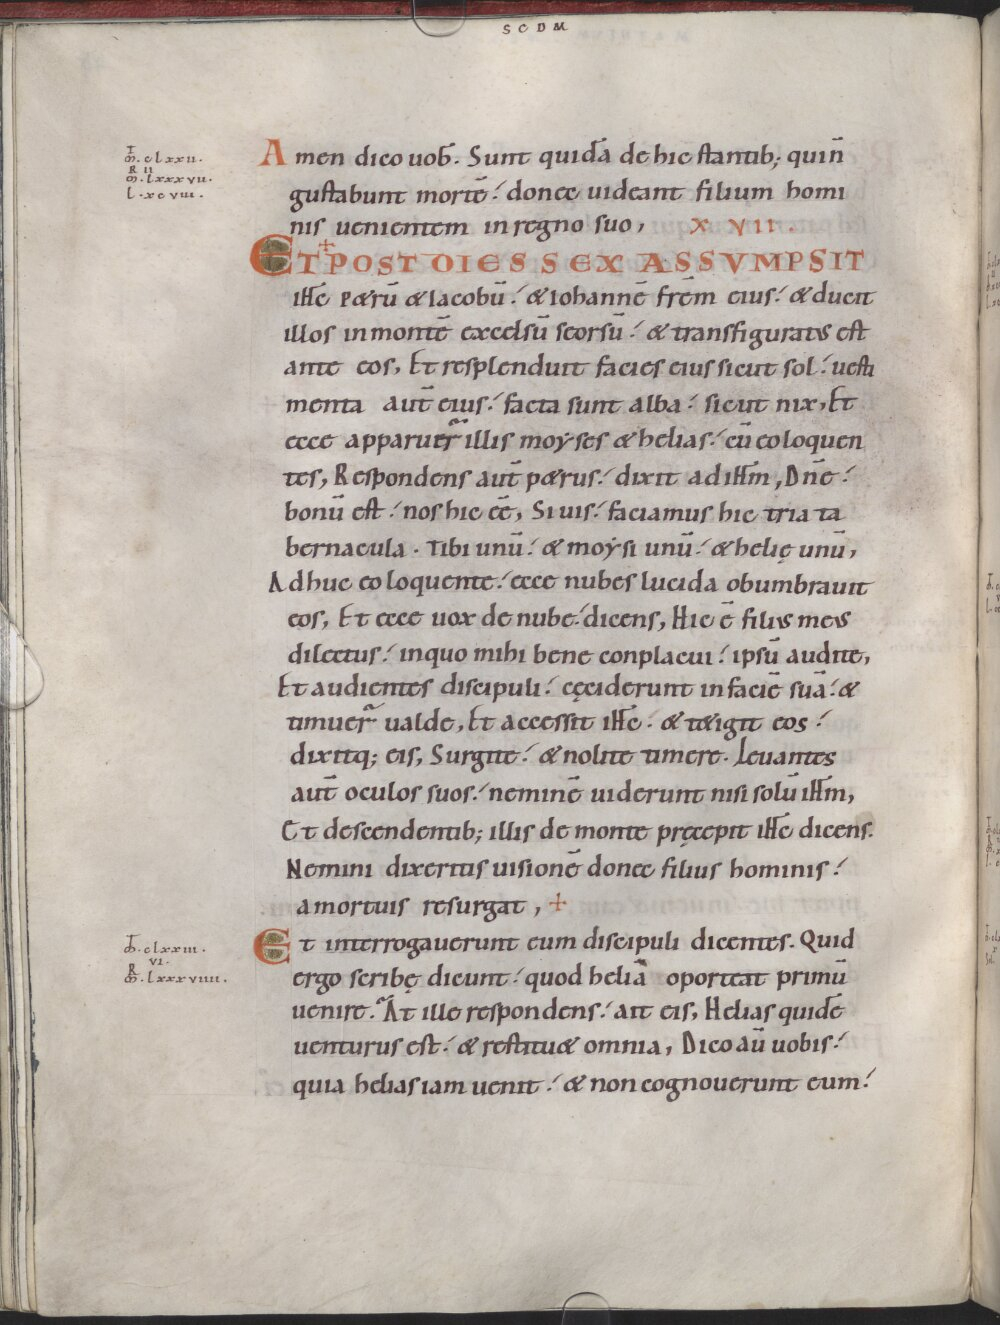 SCDM
T
ꝳ. clxxii.
R II
ꝳ. lxxxvii.
l. xcviii.
Amen dico uob̄. Sunt quidā de hic stantib; quin̄
gustabunt mortē donec uideant filium homi
nis uenientem in regno suo, XVII.
ET POST DIES SEX ASSVMPSIT
ihc̄ p&rū & iacobū & iohannē frēm eius & ducit
illos in montē excelsū seorsū & transfiguratus est
ante eos, Et resplenduit facies eius sicut sol uesti
menta aut̄ eius facta sunt alba sicut nix, Et
ecce apparuer̄ illis moyses & helias cū eo loquen
tes, Respondens aut̄ p&rus dixit ad ihm̄, Dn̄e
bonū est nos hic ēē, Si uis faciamus hic tria ta
bernacula. Tibi unū & moysi unū & helię unū,
Adhuc eo loquente ecce nubes lucida obumbrauit
eos, Et ecce uox de nube dicens, Hic ē filius meus
dilectus in quo mihi bene conplacui ipsū audite,
Et audientes discipuli cęciderunt in faciē suā &
timuer̄ ualde, Et accessit ihc̄ & t&igit eos
dixitq; eis, Surgite & nolite timere. Leuantes
aut̄ oculos suos neminē uiderunt nisi solū ihm̄,
Et descendentib; illis de monte pręcepit ihc̄ dicens.
Nemini dixeritis uisionē donec filius hominis
a mortuis resurgat, +
T
ꝳ. clxxiii.
VI.
R
ꝳ. lxxxviiii.
Et interrogauerunt eum discipuli dicentes. Quid
ergo scribę dicunt quod heliā oporteat primū
uenire. At ille respondens ait eis, Helias quidē
uenturus est & restitu& omnia, Dico aū uobis
quia helias iam uenit & non cognouerunt eum